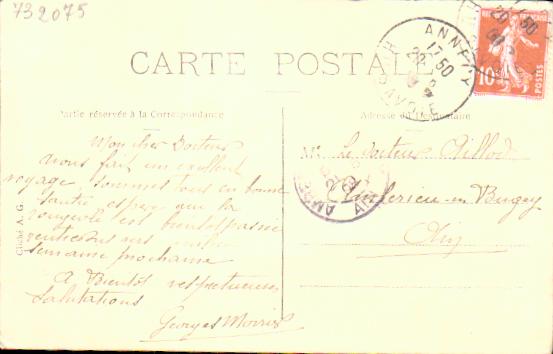 732075
CARTE POSTALE
ANNECY
17 50
HTE SAVOIE
10
POSTES
Partie réservée à la Correspondance
Adresse du Destinataire
Mon cher Docteur
Nous fait un excellent
voyage, sommes tous en bonne
santé espère que la
rougeole est bientôt passée
rentrerons vers
semaine prochaine
A Bientôt respectueuses
Salutations
Georges
Mr Le Docteur
Ambérieu-en-Bugey
Ain
AIN
Cliché A. G.